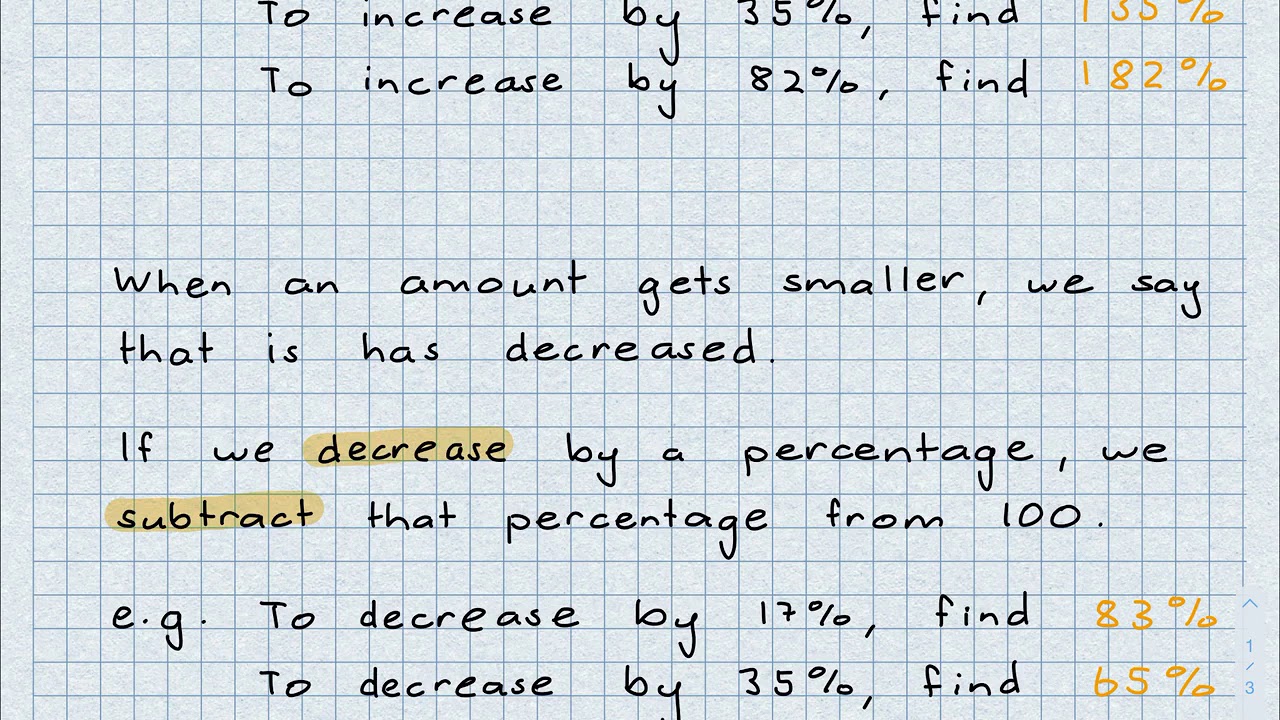 To increase by 35%, find 135%
To increase by 82%, find 182%
When an amount gets smaller, we say
that is has decreased.
If we decrease by a percentage, we
subtract that percentage from 100.
e.g. To decrease by 17%, find 83%
To decrease by 35%, find 65%
1
/
3